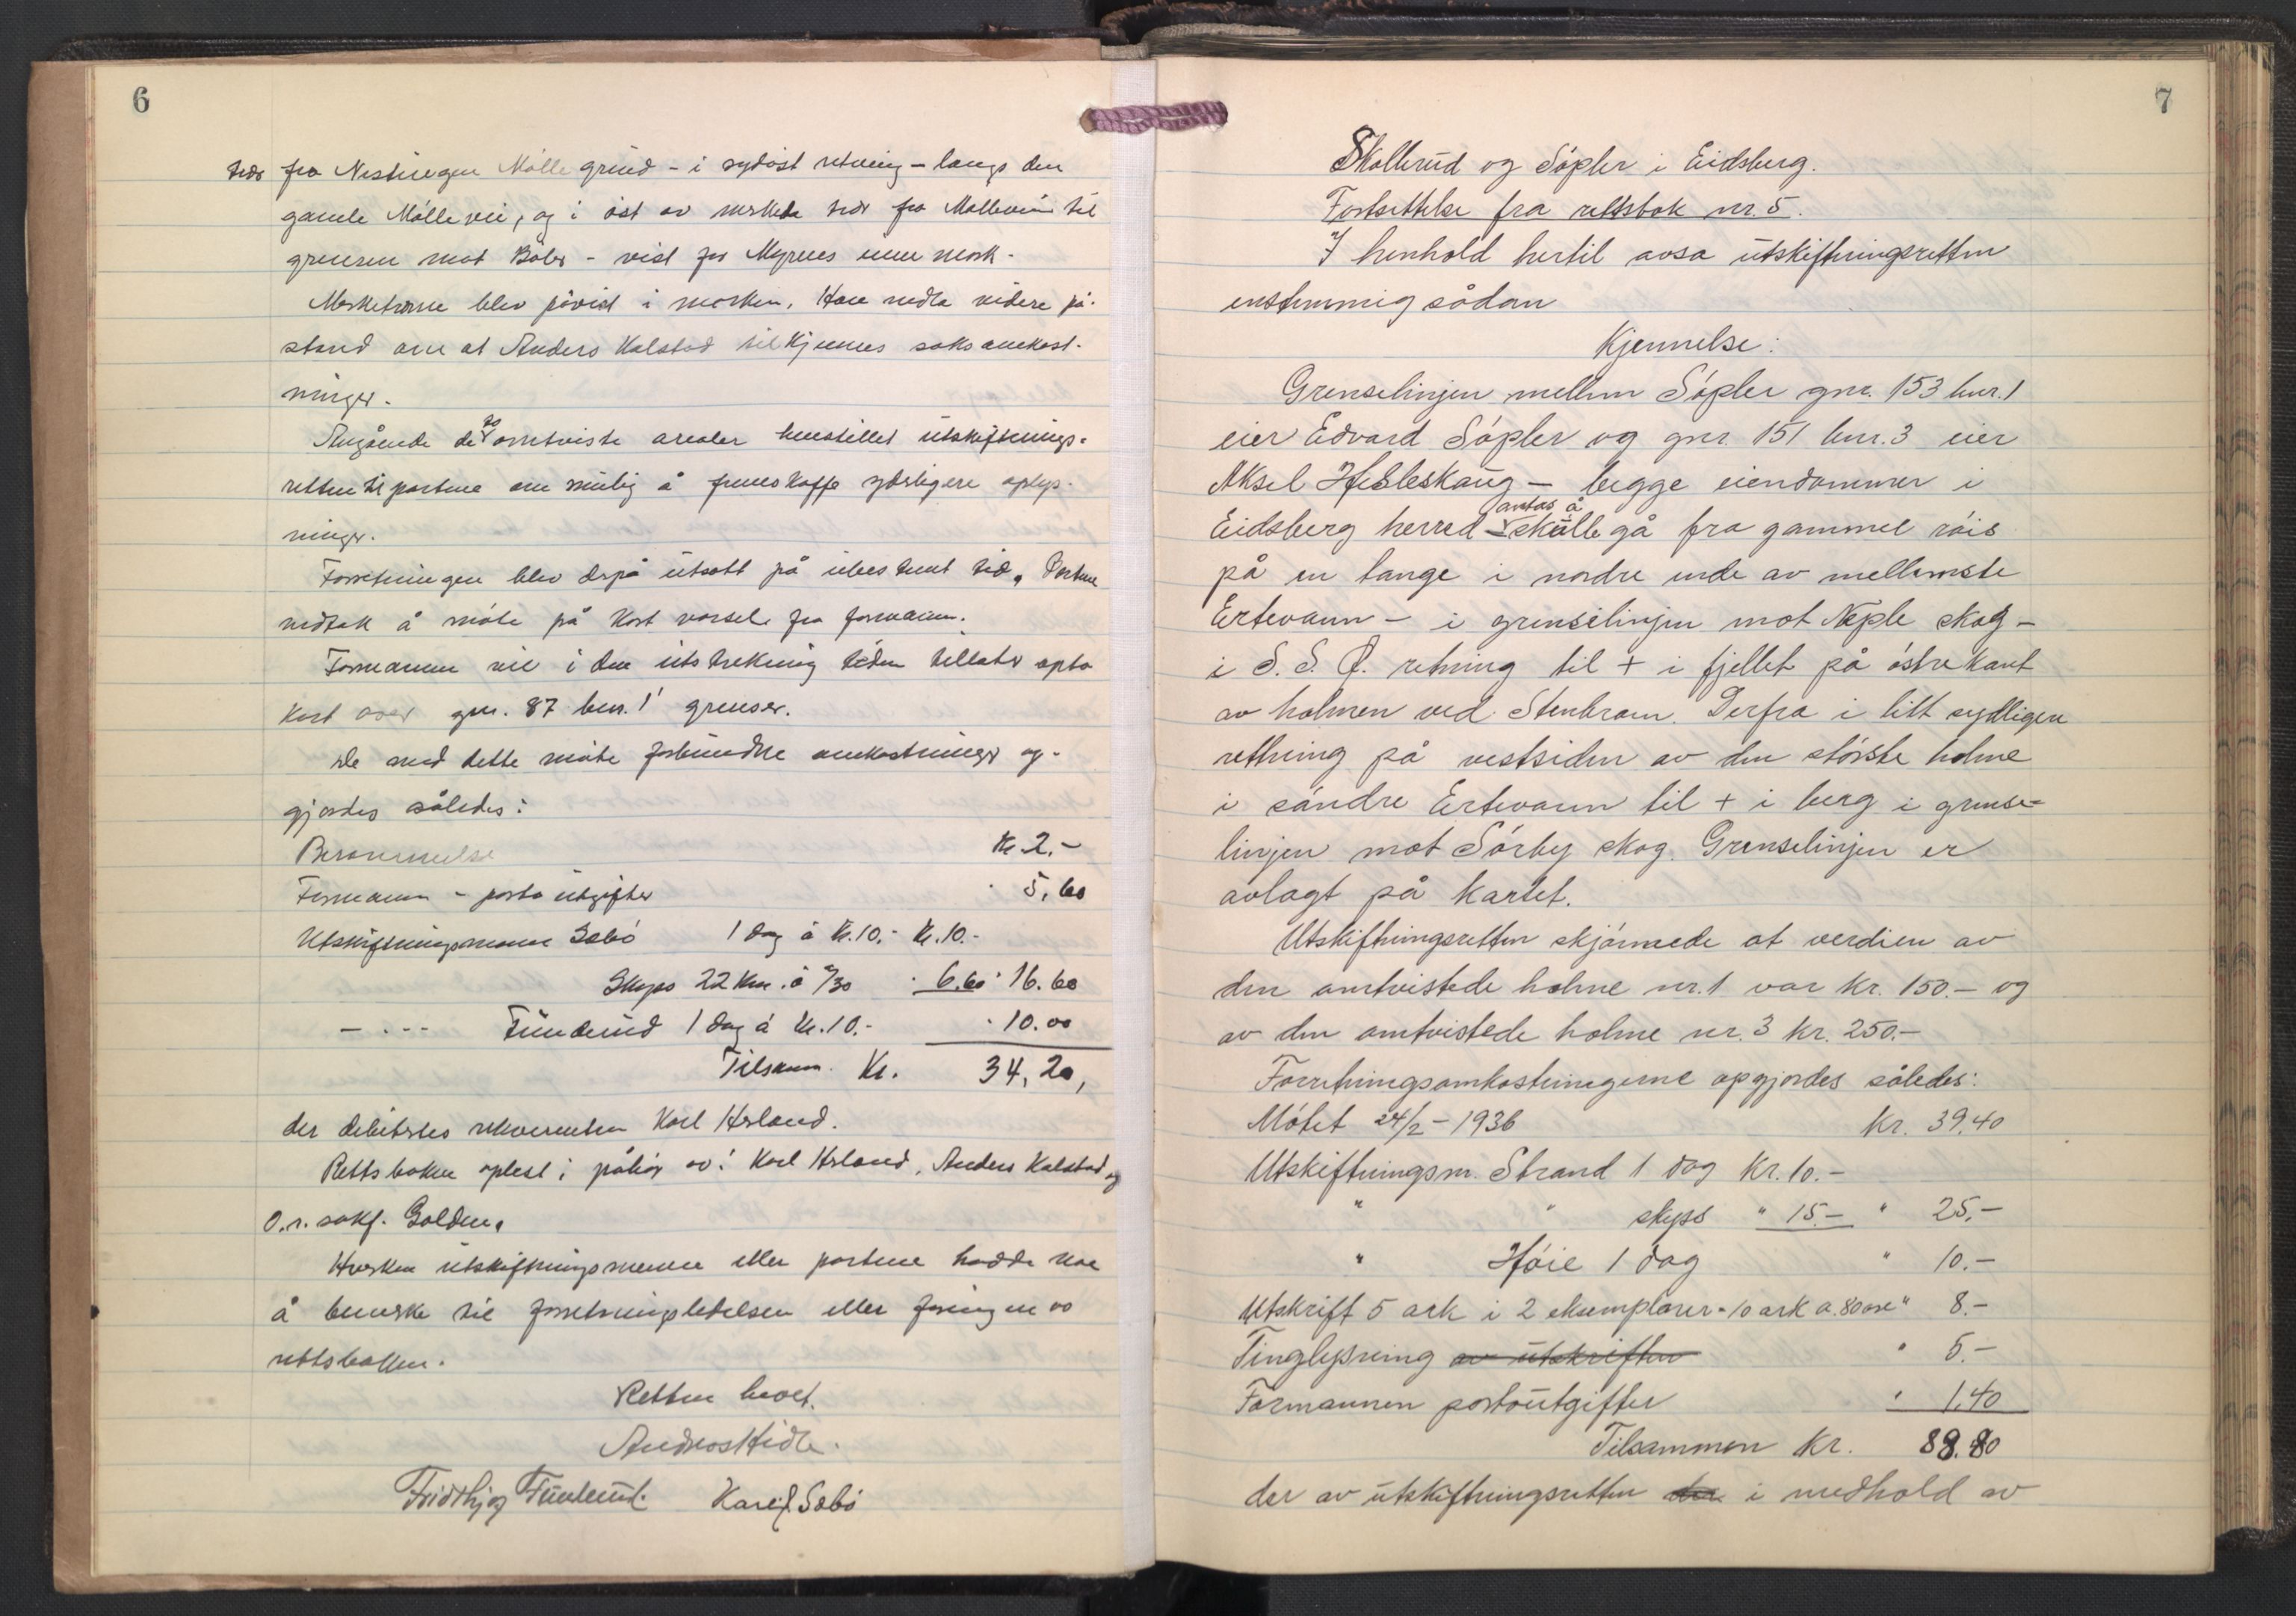 6
trær fra Nestingen Mølle grund - i sydøst retning - langs den
gamle Mølle vei, og i øst av merkede trær fra Mølleveien til
grensen mot Bøler - vist for Myrenes innmark.
Merketrærne blev påvist i marken. Han nedla videre på-
stand om at Anders Kalstad tilkjennes saksomkost-
ninger.
Angående de omtviste arealer henstillet utskiftnings-
retten til partene om mulig å fremskaffe yderligere oplys-
ninger.
Forretningen blev derpå utsatt på ubestemt tid. Partene
vedtok å møte på kort varsel fra formannen.
Formannen vil i den utstrekning tiden tillater opta
kart over gnr. 87 bnr. 1 grenser.
De med dette møte forbundne omkostninger op-
gjordes således:
Berammelse Kr 2.-
Formann - porto utgifter " 5,60
Utskiftningsmann Sæbø 1 dag à Kr. 10.- Kr. 10.-
Skyss 22 km. à 0/30 " 6.60 " 16.60
- " - Funderud 1 dag à Kr. 10.- " 10.00
Tilsam. Kr. 34,20,
der debiteres rekvirenten Karl Herland.
Rettsboken oplest i påhør av: Karl Herland, Anders Kalstad og
O.r. sakf. Golden.
Hverken utskiftningsmennene eller partene hadde noe
å bemerke til forretningsledelsen eller føringen av
rettsboken.
Retten hevet.
Andreas Hidle.
Fridthjof Fundeud. Kare J. Sæbø
7
Skollerud og Søpler i Eidsberg.
Fortsettelse fra rettsbok nr. 5.
I henhold hertil avsa utskiftningsretten
enstemmig sådan
Kjennelse:
Grenselinjen mellem Søpler gnr. 153 bnr. 1
eier Edvard Søpler og gnr. 151 bnr. 3 eier
Aksel Helleskaug - begge eiendommer i
antas å
Eidsberg herred - skulle gå fra gammel røis
på en tange i nordre ende av mellemste
Ertevann - i grenselinjen mot Neple skog -
i S. S. Ø. retning til + i fjellet på østre kant
av holmen ved Stenbrøen. Derfra i litt sydligere
rettning på vestsiden av den største holme
i søndre Ertevann til + i berg i grense=
linjen mot Sørby skog. Grenselinjen er
avlagt på kartet.
Utskiftningsretten skjønnede at verdien av
den omtvistede holme nr. 1 var kr. 150.- og
av den omtvistede holme nr. 3 kr. 250.-
Forretningsomkostningene opgjordes således:
Møtet 24/2 - 1936 kr. 39.40
Utskiftningsm. Strand 1 dag Kr. 10.-
" " skyss " 15.- " 25.-
" Høie 1 dag " 10.-
Utskrift 5 ark i 2 eksemplarer = 10 ark a. 80 øre " 8.-
Tinglysning av utskriften " 5.-
Formannen portoutgifter " 1.40
Tilsammen kr. 88.80
der av utskiftningsretten der i medhold av